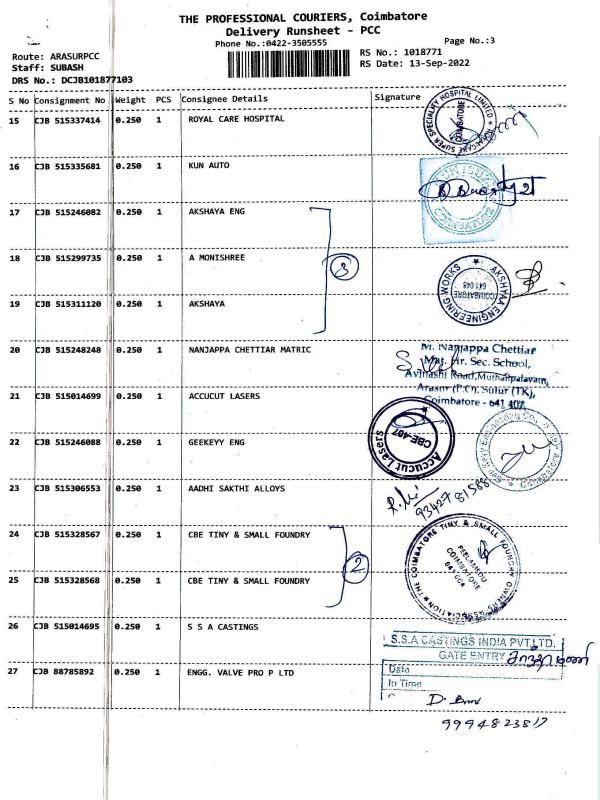 THE PROFESSIONAL COURIERS, Coimbatore
Delivery Runsheet - PCC
Phone No.:0422-3505555
Page No.:3
Route: ARASURPCC
RS No.: 1018771
Staff: SUBASH
RS Date: 13-Sep-2022
DRS No.: DCJB101877103
S No Consignment No Weight PCS Consignee Details Signature
15 CJB 515337414 0.250 1 ROYAL CARE HOSPITAL
SUPER SPECIALITY HOSPITAL LIMITED COIMBATORE
16 CJB 515335681 0.250 1 KUN AUTO
COIMBATORE
17 CJB 515246082 0.250 1 AKSHAYA ENG
18 CJB 515299735 0.250 1 A MONISHREE
3
AKSHYAA ENGINEERING WORKS
COIMBATORE
641 048
19 CJB 515311120 0.250 1 AKSHAYA
20 CJB 515248248 0.250 1 NANJAPPA CHETTIAR MATRIC
M. Nanjappa Chettiar
Mat. Hr. Sec. School,
Avinashi Road, Muthalipalayam,
Arasur (P.O), Sulur (TK),
Coimbatore - 641 407.
21 CJB 515014699 0.250 1 ACCUCUT LASERS
Accucut Lasers
CBE-407
22 CJB 515246088 0.250 1 GEEKEYY ENG
23 CJB 515306553 0.250 1 AADHI SAKTHI ALLOYS
93427 81588
24 CJB 515328567 0.250 1 CBE TINY & SMALL FOUNDRY
2
THE COIMBATORE TINY & SMALL FOUNDRY OWNERS ASSOCIATION
PEELAMEDU
COIMBATORE
641 004
25 CJB 515328568 0.250 1 CBE TINY & SMALL FOUNDRY
26 CJB 515014695 0.250 1 S S A CASTINGS
S.S.A CASTINGS INDIA PVT.LTD.
GATE ENTRY
Date
In Time
27 CJB 88785892 0.250 1 ENGG. VALVE PRO P LTD
9994823817